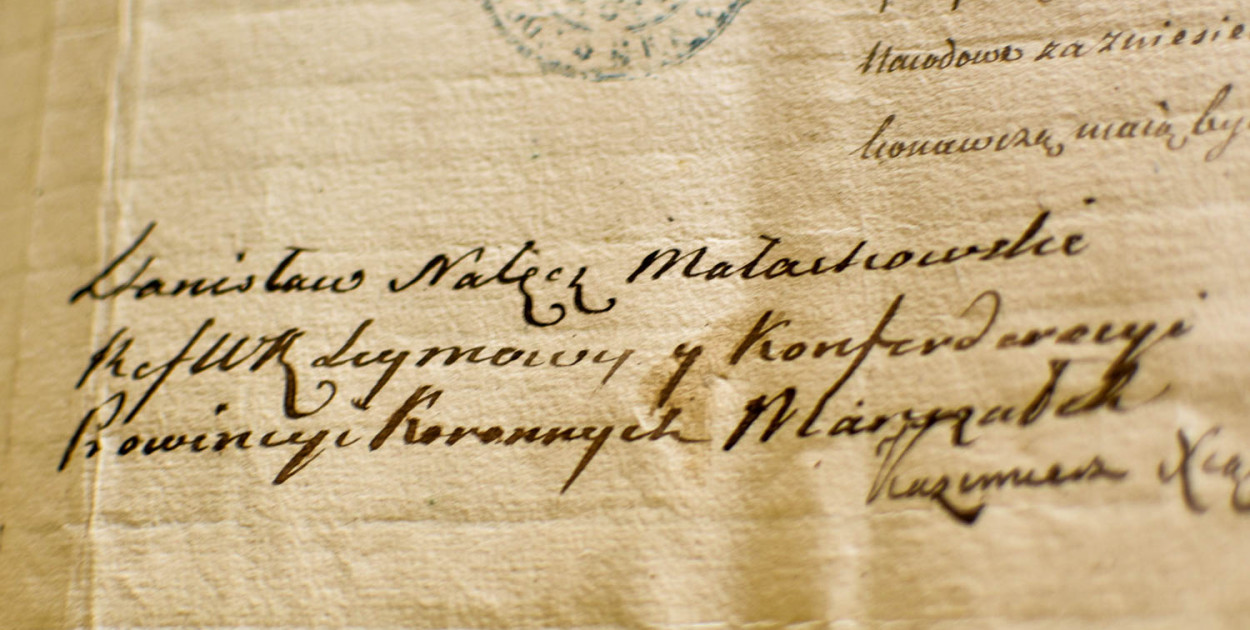 Narodowe za zniesie
konawczą maią by
Stanisław Nałęcz Małachowski
Ref W K Seymowy y Konfederacyi
Prowincyi Koronnych Marszałek
Kazimierz Xią